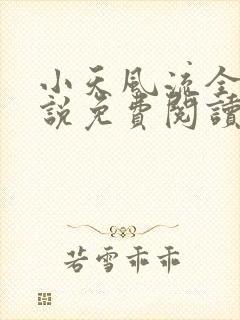 小天風流全
說免費閱讀
若雪乖乖